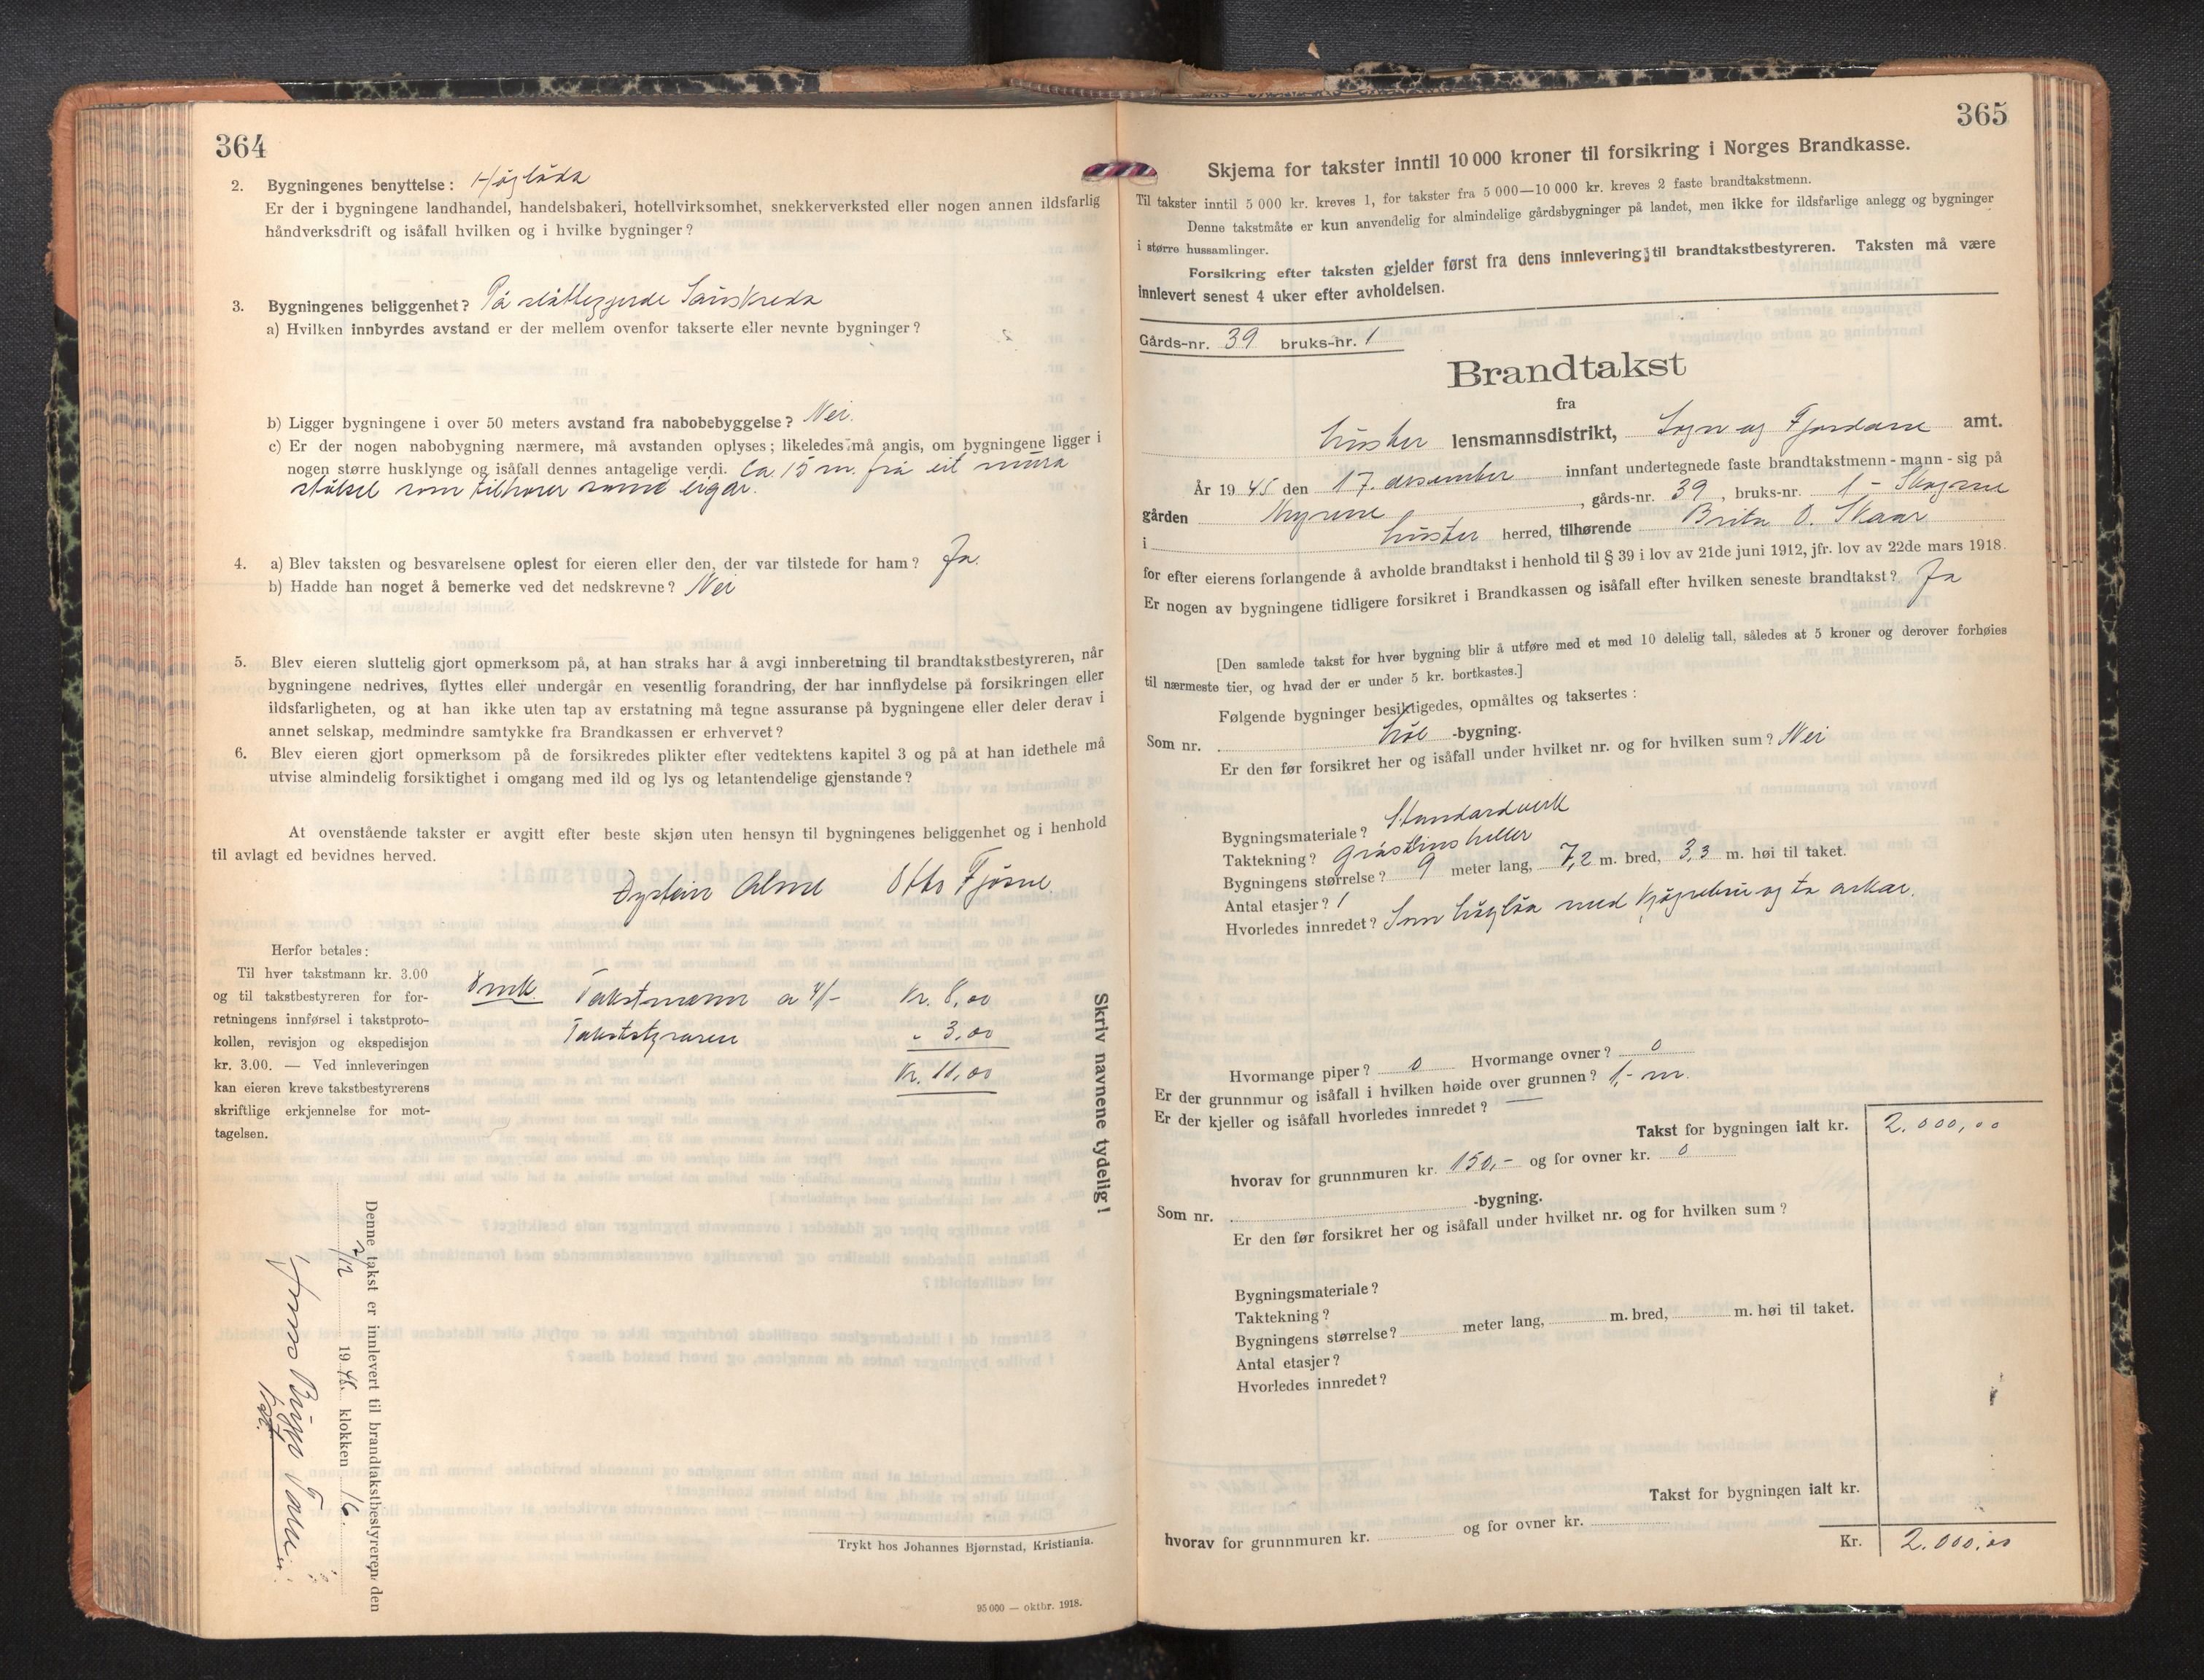 364
2. Bygningenes benyttelse: Høgløda
Er der i bygningene landhandel, handelsbakeri, hotellvirksomhet, snekkerverksted eller nogen annen ildsfarlig
håndverksdrift og isåfall hvilken og i hvilke bygninger?
3. Bygningenes beliggenhet? På slåtteegjerde
a) Hvilken innbyrdes avstand er der mellem ovenfor takserte eller nevnte bygninger?
b) Ligger bygningene i over 50 meters avstand fra nabobebyggelse? Nei.
c) Er der nogen nabobygning nærmere, må avstanden oplyses; likeledes må angis, om bygningene ligger i
nogen større husklynge og isåfall dennes antagelige verdi. Ca. 15 m. frå eit mura
stølsel som tilhører same eigar.
4. a) Blev taksten og besvarelsene oplest for eieren eller den, der var tilstede for ham? Ja.
b) Hadde han noget å bemerke ved det nedskrevne? Nei
5. Blev eieren sluttelig gjort opmerksom på, at han straks har å avgi innberetning til brandtakstbestyreren, når
bygningene nedrives, flyttes eller undergår en vesentlig forandring, der har innflydelse på forsikringen eller
ildsfarligheten, og at han ikke uten tap av erstatning må tegne assuranse på bygningene eller deler derav i
annet selskap, medmindre samtykke fra Brandkassen er erhvervet?
6. Blev eieren gjort opmerksom på de forsikredes plikter efter vedtektens kapitel 3 og på at han idethele må
utvise almindelig forsiktighet i omgang med ild og lys og letantendelige gjenstande?
At ovenstående takster er avgitt efter beste skjøn uten hensyn til bygningenes beliggenhet og i henhold
til avlagt ed bevidnes herved.
Øystein Alme Otto Fjøsne
Herfor betales:
Til hver takstmann kr. 3.00
og til takstbestyreren for for-
retningens innførsel i takstproto-
kollen, revisjon og ekspedisjon
kr. 3.00. — Ved innleveringen
kan eieren kreve takstbestyrerens
skriftlige erkjennelse for mot-
tagelsen.
Omk. Takstmenn a 4/- Kr. 8,00
Takststyraren " 3.00
Kr. 11,00
Skriv navnene tydelig!
Denne takst er innlevert til brandtakstbestyreren den
2/12 1946. klokken 16.
Trykt hos Johannes Bjørnstad, Kristiania.
95 000 — oktbr. 1918.
365
Skjema for takster inntil 10 000 kroner til forsikring i Norges Brandkasse.
Til takster inntil 5 000 kr. kreves 1, for takster fra 5 000—10 000 kr. kreves 2 faste brandtakstmenn.
Denne takstmåte er kun anvendelig for almindelige gårdsbygninger på landet, men ikke for ildsfarlige anlegg og bygninger
i større hussamlinger.
Forsikring efter taksten gjelder først fra dens innlevering til brandtakstbestyreren. Taksten må være
innlevert senest 4 uker efter avholdelsen.
Gårds-nr. 39 bruks-nr. 1
Brandtakst
fra
Luster lensmannsdistrikt, Sogn og Fjordane amt.
År 1945 den 17. desember innfant undertegnede faste brandtakstmenn - mann - sig på
gården Myrene, gårds-nr. 39, bruks-nr. 1 -
i Luster herred, tilhørende Brita O. Skaar
for efter eierens forlangende å avholde brandtakst i henhold til § 39 i lov av 21de juni 1912, jfr. lov av 22de mars 1918.
Er nogen av bygningene tidligere forsikret i Brandkassen og isåfall efter hvilken seneste brandtakst? Ja
[Den samlede takst for hver bygning blir å utføre med et med 10 delelig tall, således at 5 kroner og derover forhøies
til nærmeste tier, og hvad der er under 5 kr. bortkastes.]
Følgende bygninger besiktigedes, opmåltes og taksertes:
Som nr. Løe -bygning.
Er den før forsikret her og isåfall under hvilket nr. og for hvilken sum? Nei
Bygningsmateriale? Standardverk
Taktekning? gråsteinsheller
Bygningens størrelse? 9 meter lang, 7,2 m. bred, 3,3 m. høi til taket.
Antal etasjer? 1
Hvorledes innredet? Som høgløa med kjøyrebru og to arkar.
Hvormange piper? 0 Hvormange ovner? 0
Er der grunnmur og isåfall i hvilken høide over grunnen? 1,- m.
Er der kjeller og isåfall hvorledes innredet? —
Takst for bygningen ialt kr. 2.000,00
hvorav for grunnmuren kr. 150,- og for ovner kr. 0
Som nr. -bygning.
Er den før forsikret her og isåfall under hvilket nr. og for hvilken sum?
Bygningsmateriale?
Taktekning?
Bygningens størrelse? meter lang, m. bred, m. høi til taket.
Antal etasjer?
Hvorledes innredet?
Takst for bygningen ialt kr.
hvorav for grunnmuren kr. og for ovner kr.
Kr. 2.000,00